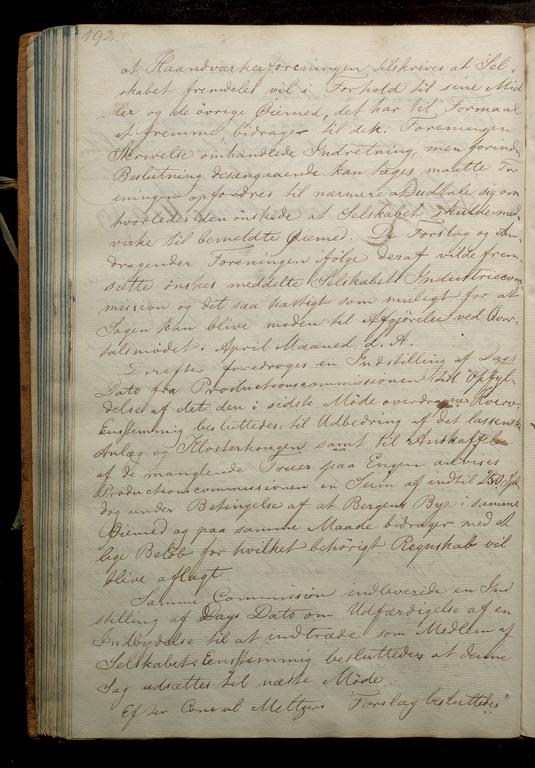 192.
at Haandværkerforeningen tilskrives at Sel-
skabet fremdeles vil i Forhold til sine Mid
ler og de øvrige Øiemed, det har til Formaal
at fremme, bidrage til de i Foreningens
Skrivelse omhandlede Indretning, men forinden
Beslutning desangaaende kan tages maatte For
eningen opfordres til nærmere at udtale sig om
hvorledes den ønskede at Selskabet skulde med
virke til bemeldte Øiemed. De Forslag og An-
dragender Foreningen ifølge deraf vilde frem-
sætte ønskes meddelte Selskabets Industriecom
mission og det saa hastigt som muligt for at
Sagen kan blive moden til Afgjørelse ved Qvar-
talsmødet i April Maaned d. A.
Derefter foredroges en Indstilling af Dags
Dato fra Productionscommissionen til Opfyl-
delse af det den i sidste Møde overdragne Hverv.
Eenstemmig besluttedes til Udbedring af det
Anlæg og Klosterhougen samt til Anskaffelse
af de manglende Træer paa Engen anvises
Productionscommissionen en Sum af indtil 250 Spd
dog under Betingelse af at Bergens Bye i samme
Øiemed og paa samme Maade bidrager med et
lige Beløb for hvilket behørigt Regnskab vil
blive aflagt.
Samme Commission indleverede en Ind
stilling af Dags Dato om Udfærdigelse af en
Indbydelse til at indtræde som Medlem af
Selskabet. Eenstemmig besluttedes at denne
Sag udsættes til næste Møde.
Efter Consul Meltzers Forslag besluttedes